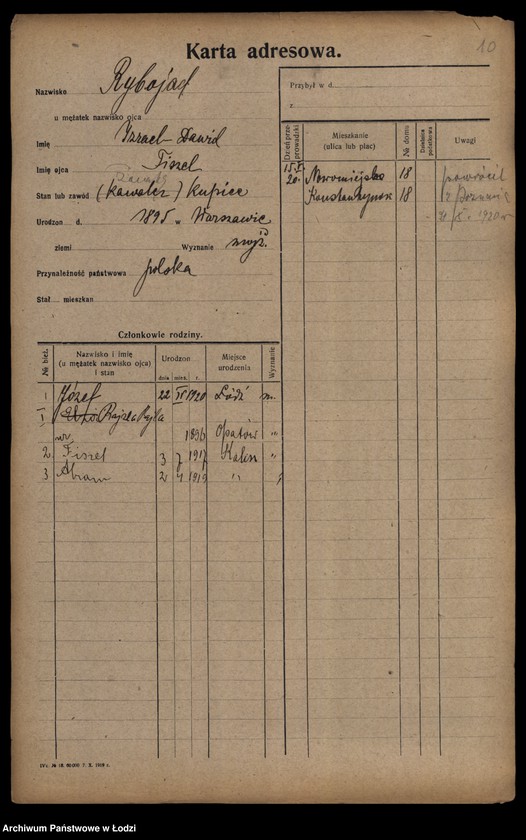 Karta adresowa.
10
Nazwisko Rybojad
u mężatek nazwisko ojca
Imię Izrael-Dawid
Imię ojca Fiszel
Stan lub zawód (kawaler) kupiec
Urodzon d. 1895 w Warszawie
ziemi Wyznanie mojż.
Przynależność państwowa polska
Stał. mieszkan
Przybył w d.
z
Dzień przeprowadzki
Mieszkanie (ulica lub plac)
№ domu
Dzielnica podatkowa
Uwagi
Nowomiejska 18 powrócił
20. Konstantynow 18
1920 r
Członkowie rodziny.
№ bież.
Nazwisko i imię (u mężatek nazwisko ojca) i stan
Urodzon
dnia mies. r.
Miejsce urodzenia
Wyznanie
1 Józef 22 IV 1920 Łódź m.
Rajzla Rajla
1896 Opatów "
2 Fiszel 3 7 1917 "
3 Abram 2 4 1919 " "
Archiwum Państwowe w Łodzi